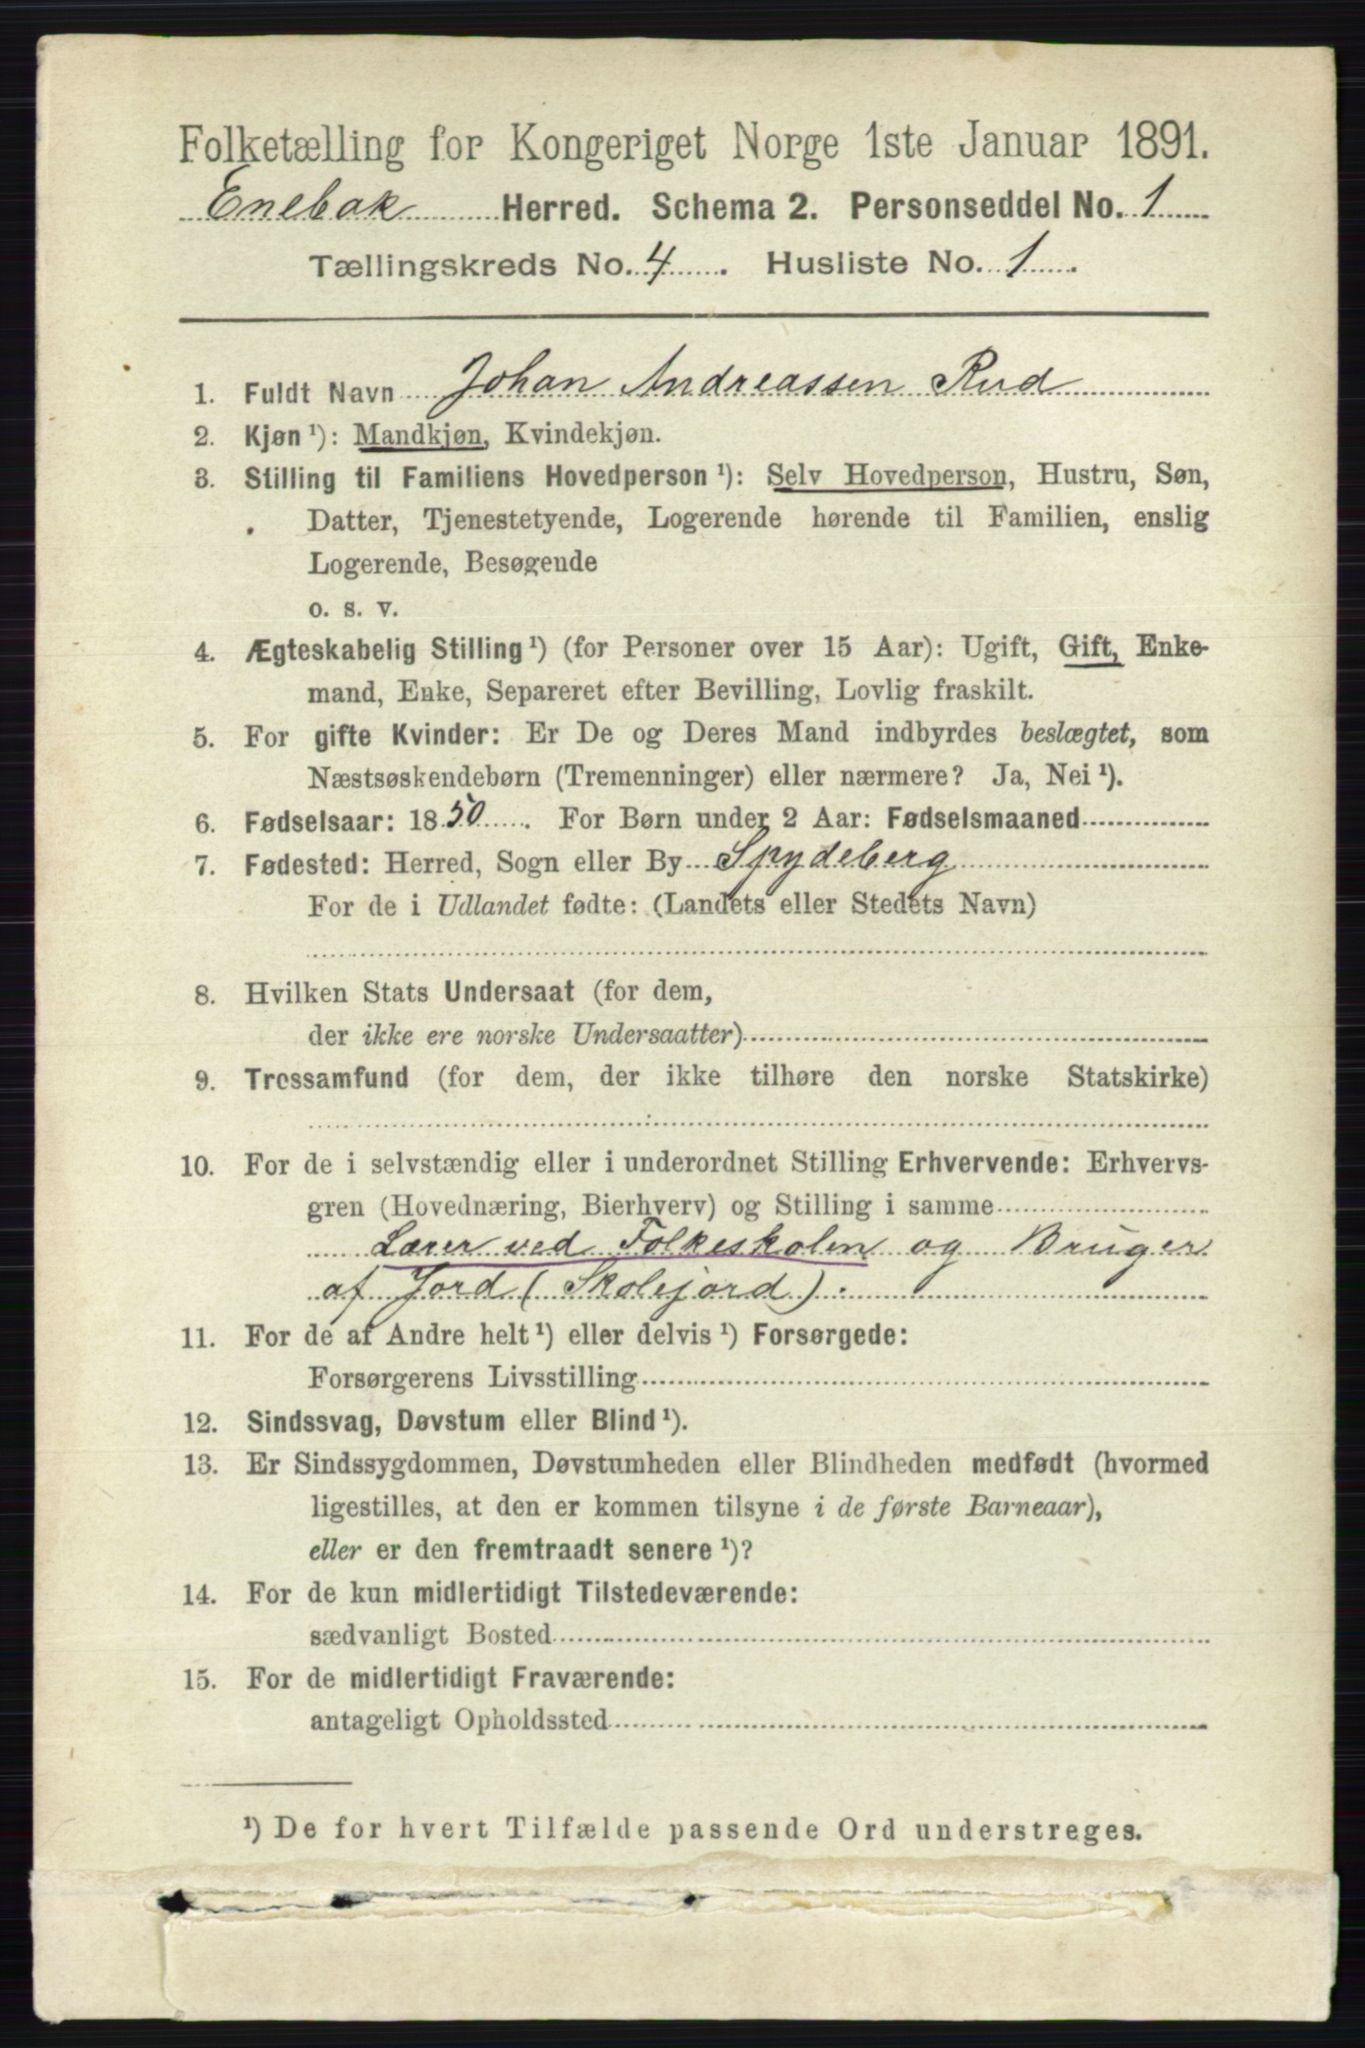 Folketælling for Kongeriget Norge 1ste Januar 1891.
Enebak Herred. Schema 2. Personseddel No. 1
Tællingskreds No. 4. Husliste No. 1.
1. Fuldt Navn Johan Andreassen Rud
2. Kjøn ¹): Mandkjøn, Kvindekjøn.
3. Stilling til Familiens Hovedperson ¹): Selv Hovedperson, Hustru, Søn,
Datter, Tjenestetyende, Logerende hørende til Familien, enslig
Logerende, Besøgende
o. s. v.
4. Ægteskabelig Stilling ¹) (for Personer over 15 Aar): Ugift, Gift, Enke-
mand, Enke, Separeret efter Bevilling, Lovlig fraskilt.
5. For gifte Kvinder: Er De og Deres Mand indbyrdes beslægtet, som
Næstsøskendebørn (Tremenninger) eller nærmere? Ja, Nei ¹).
6. Fødselsaar: 1850. For Børn under 2 Aar: Fødselsmaaned
7. Fødested: Herred, Sogn eller By Spydeberg
For de i Udlandet fødte: (Landets eller Stedets Navn)
8. Hvilken Stats Undersaat (for dem,
der ikke ere norske Undersaatter)
9. Trossamfund (for dem, der ikke tilhøre den norske Statskirke)
10. For de i selvstændig eller i underordnet Stilling Erhvervende: Erhvervs-
gren (Hovednæring, Bierhverv) og Stilling i samme
Lærer ved Folkeskolen og Bruger
af Jord (Skolejord).
11. For de af Andre helt ¹) eller delvis ¹) Forsørgede:
Forsørgerens Livsstilling
12. Sindssvag, Døvstum eller Blind ¹).
13. Er Sindssygdommen, Døvstumheden eller Blindheden medfødt (hvormed
ligestilles, at den er kommen tilsyne i de første Barneaar),
eller er den fremtraadt senere ¹)?
14. For de kun midlertidigt Tilstedeværende:
sædvanligt Bosted
15. For de midlertidigt Fraværende:
antageligt Opholdssted
¹) De for hvert Tilfælde passende Ord understreges.